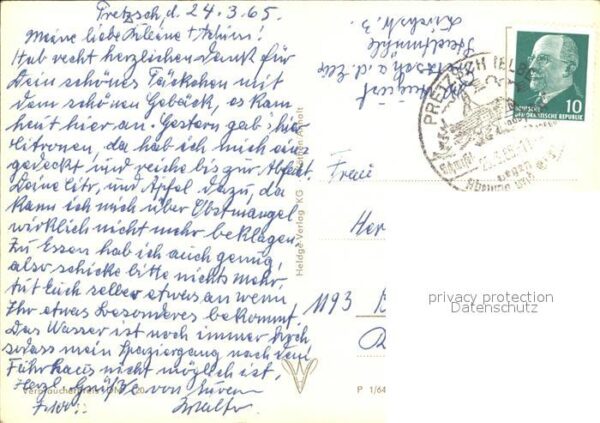 Pretzsch, d. 24.3.65.
Meine liebe kleine
Hab recht herzlichen Dank für
Dein schönes Päckchen mit
dem schönen Gebäck, es kam
heut hier an. Gestern gab's hier
Zitronen, da hab ich mich ein-
gedeckt und reiche bis zur Abfahrt.
Deine Citr. und Äpfel dazu, da
kann ich mich über Obstmangel
wirklich nicht mehr beklagen.
Zu Essen hab ich auch genug,
also schicke bitte nichts mehr,
tut Euch selber etwas an wenn
Ihr etwas besonderes bekommt.
Das Wasser ist noch immer hoch
sodass mein Spaziergang nach dem
Fährhaus nicht möglich ist.
Herzl. Grüße von Eurem
Walter
Verbraucherpreis
Heldge-Verlag KG
P 1/64
PRETZSCH (ELBE)
10
DEUTSCHE
DEMOKRATISCHE REPUBLIK
Frau
Her
1193
privacy protection
Datenschutz